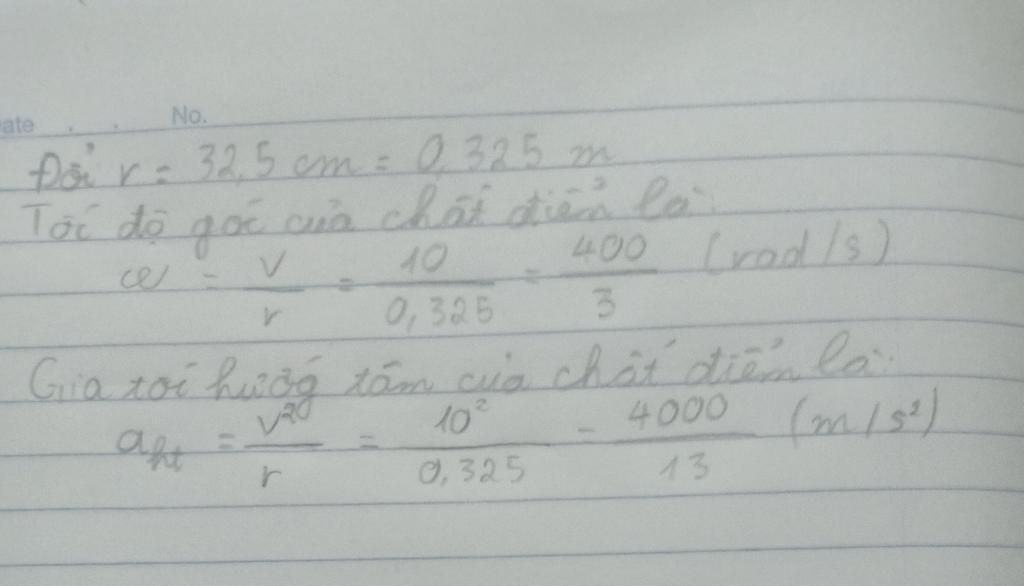 ate . . No.
Đổi r = 32,5 cm = 0,325 m
Tốc độ góc của chất điểm là:
ω = v/r = 10/0,325 = 400/3 (rad/s)
Gia tốc hướg tâm của chất điểm là:
aht = v²/r = 10²/0,325 = 4000/13 (m/s²)